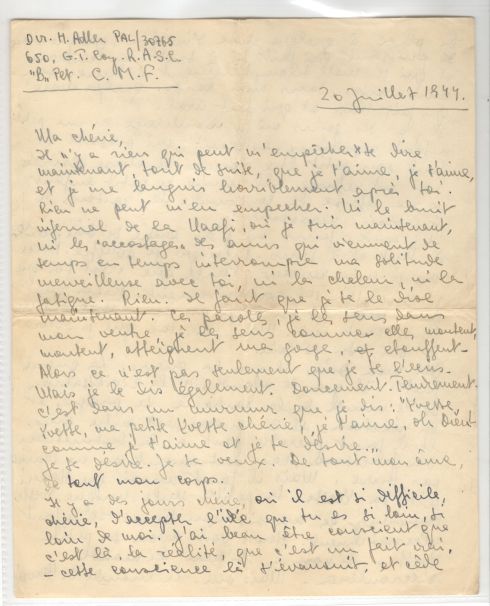 Dvr. H. Adler PAL/30765
650, G.T. Coy. R.A.S.C.
"B" Pet. C.M.F.
20 Juillet 1944.
Ma chérie,
Il n'y a rien qui peut m'empêcher de te dire
maintenant, tout de suite, que je t'aime, je t'aime,
et je me languis horriblement après toi.
Rien ne peut m'en empecher. Ni le bruit
infernal de la Naafi, où je suis maintenant,
ni les "accostages" des amis qui viennent de
temps en temps interrompre ma solitude
merveilleuse avec toi, ni la chaleur, ni la
fatigue. Rien. Il faut que je te le dise
maintenant. Ces paroles, je les sens dans
mon ventre, je les sens comme elles montent,
montent, atteignent ma gorge, et étouffent.
Alors ce n'est pas seulement que je te l'écris.
Mais je le dis également. Doucement. Tendrement.
C'est dans un murmure que je dis: "Yvette,
Yvette, ma petite Yvette chérie, je t'aime, oh Dieu
comme je t'aime et je te désire...
Je te désire. Je te veux. De tout mon âme,
de tout mon corps.
Il y a des jours chérie, où il est si difficile,
chérie, d'accepter l'idée que tu es si loin, si
loin de moi. J'ai beau être conscient que
c'est là la réalité, que c'est un fait vrai,
- cette conscience là s'évanouit, et cède